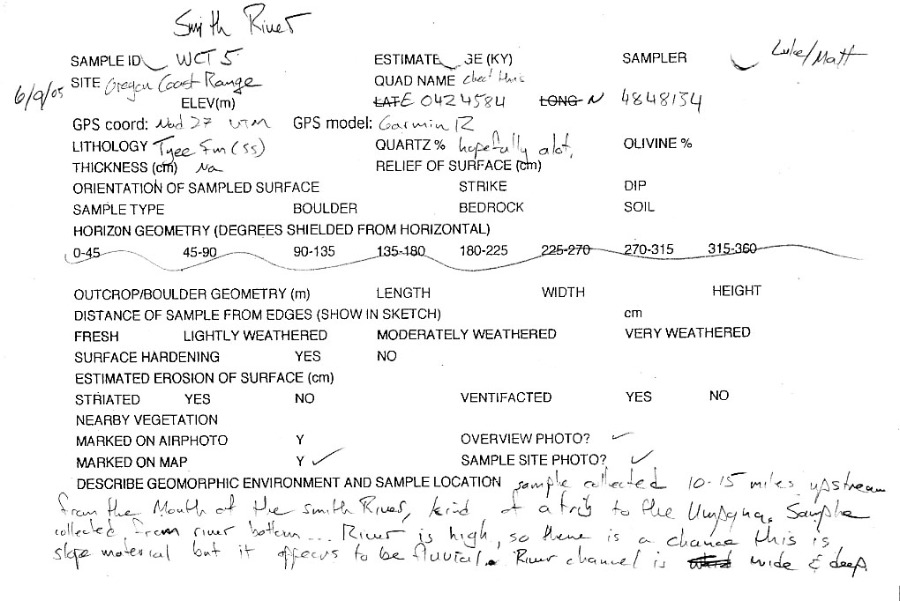 Smith River
SAMPLE ID WCT 5 ESTIMATE GE (KY) SAMPLER Luke/Matt
6/9/05 SITE Oregon Coast Range QUAD NAME check this
ELEV(m) LAT E 0424584 LONG N 4848134
GPS coord: Nad 27 UTM GPS model: Garmin 12
LITHOLOGY Tyee Fm (SS) QUARTZ % hopefully alot, OLIVINE %
THICKNESS (cm) Na RELIEF OF SURFACE (cm)
ORIENTATION OF SAMPLED SURFACE STRIKE DIP
SAMPLE TYPE BOULDER BEDROCK SOIL
HORIZON GEOMETRY (DEGREES SHIELDED FROM HORIZONTAL)
0-45 45-90 90-135 135-180 180-225 225-270 270-315 315-360
OUTCROP/BOULDER GEOMETRY (m) LENGTH WIDTH HEIGHT
DISTANCE OF SAMPLE FROM EDGES (SHOW IN SKETCH) cm
FRESH LIGHTLY WEATHERED MODERATELY WEATHERED VERY WEATHERED
SURFACE HARDENING YES NO
ESTIMATED EROSION OF SURFACE (cm)
STRIATED YES NO VENTIFACTED YES NO
NEARBY VEGETATION
MARKED ON AIRPHOTO Y OVERVIEW PHOTO? ✓
MARKED ON MAP Y ✓ SAMPLE SITE PHOTO? ✓
DESCRIBE GEOMORPHIC ENVIRONMENT AND SAMPLE LOCATION sample collected 10-15 miles upstream
from the Mouth of the smith River, kind of a trib to the Umpqua. Sample
collected from river bottom... River is high, so there is a chance this is
slope material but it appears to be fluvial. River channel is wide & deep